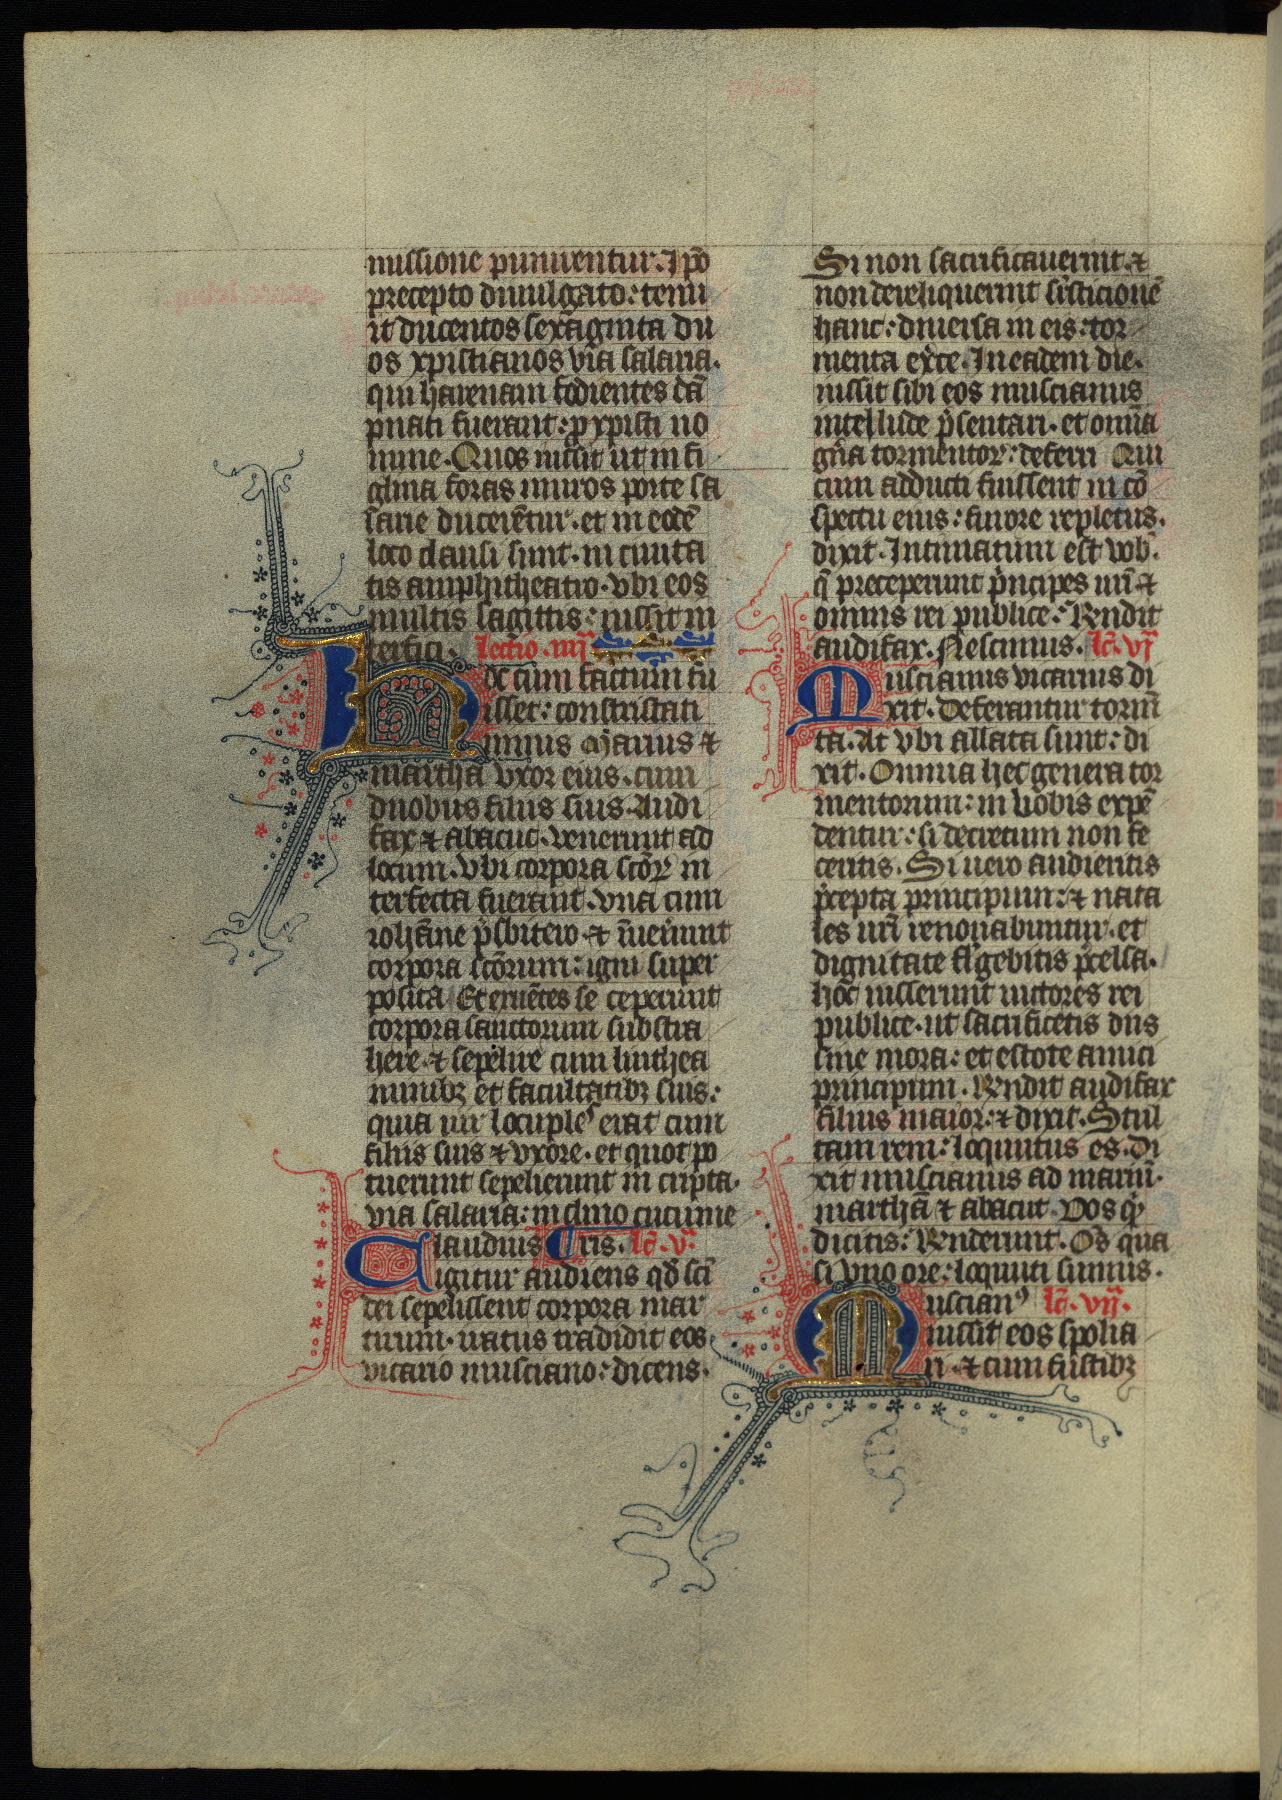 missione punirentur. Ip̄o
precepto divulgato: tenu
it ducentos sexaginta du
os xpistianos via salaria.
qui harenam fodientes dā
pnati fuerant: p xpisti no
mine. Quos iussit ut in fi
glina foras muros porte sa
larie ducerētur. et in eodē
loco clausi sunt. in civita
tis amphitheatro. vbi eos
multis sagittis: iussit in
terfici. lectio. iiij
Hoc cum factum fu
isset: constristati
simus Marius ⁊
martha vxor eius. cum
duobus filiis suis. Audi
fax ⁊ abacuc. venerunt ad
locum. vbi corpora scōꝝ in
terfecta fuerant. vna cum
iohāne p̄sbitero ⁊ īuenerunt
corpora scōrum: igni super
posita Et eruētes se ceperunt
corpora sanctorum substra
here. ⁊ sepelire cum linthea
minibꝫ et facultatibꝫ suis:
quia vir locuples erat cum
filiis suis ⁊ vxore. et quot po
tuerunt sepelierunt in cripta.
via salaria: in clivo cucume
Claudius cris. lc̄. v.
igitur audiens qd̄ scī
dei sepelissent corpora mar
tirum. iratus tradidit eos
vicario musciano: dicens.
Si non sacrificaverint. ⁊
non dereliquerint suꝑsticionē
hanc: diversa in eis: tor
menta exerce. In eadem die.
iussit sibi eos muscianus
intellude p̄sentari. et omnia
gn̄a tormentoꝝ: deferri Qui
cum adducti fuissent in cō
spectu eius: furore repletus.
dixit. Intimatum est vob̄.
q̄ preceperunt pͥncipes nr̄i ⁊
omnis rei publice: Rn̄dit
audifax. Nescimus. lc̄. vj
Muscianus vicarius di
xit. Deferantur torm̄
ta. At vbi allata sunt: di
xit. Omnia hec genera tor
mentorum: in vobis expē
dentur: si decretum non fe
ceritis. Si vero audieritis
p̄cepta principum: ⁊ nata
les vr̄i renovabuntur. et
dignitate fulgebitis p̄celsa.
hoc iusserunt victores rei
publice. ut sacrificetis diis
sine mora: et estote amici
principum. Rn̄dit audifax
filius maior: ⁊ dixit. Stul
tam rem: loquutus es. di
xit muscianus ad mariū.
marthā ⁊ abacuc. Vos qͥd
dicitis: Rn̄derunt. Qd̄ qua
si vno ore: loquuti sumus.
Muscianꝰ lc̄. vij.
iussit eos spolia
ri. ⁊ cum fustibꝫ